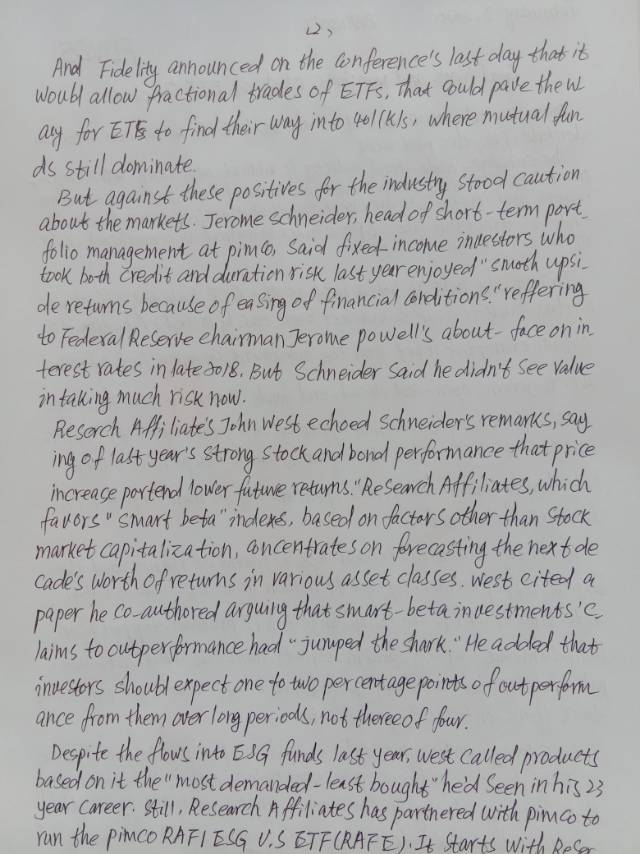 (2)
And Fidelity announced on the conference's last day that it
would allow fractional trades of ETFs, That could pave the w
ay for ETFs to find their way into 401(k)s, where mutual fun
ds still dominate.
But against these positives for the industry stood caution
about the markets. Jerome Schneider, head of short-term port
folio management at pimco, said fixed-income investors who
took both credit and duration risk last year enjoyed "smoth upsi-
de returns because of easing of financial conditions." reffering
to Federal Reserve chairman Jerome powell's about-face on in-
terest rates in late 2018. But Schneider said he didn't see value
in taking much risk now.
Reserch Affiliate's John West echoed Schneider's remarks, say
ing of last year's strong stock and bond performance that price
increase portend lower future returns." Research Affiliates, which
favors "smart beta" indexes, based on factors other than stock
market capitalization, concentrates on forecasting the next de
cade's worth of returns in various asset classes. West cited a
paper he co-authored arguing that smart-beta investments' c
laims to outperformance had "jumped the shark." He added that
investors should expect one to two percentage points of outperform
ance from them over long periods, not thereeof four.
Despite the flows into ESG funds last year, West called products
based on it the "most demanded-least bought" he'd seen in his 23
year career. Still, Research Affiliates has partnered with pimco to
run the PIMCO RAFI ESG U.S ETF (RAFE). It starts with Reser